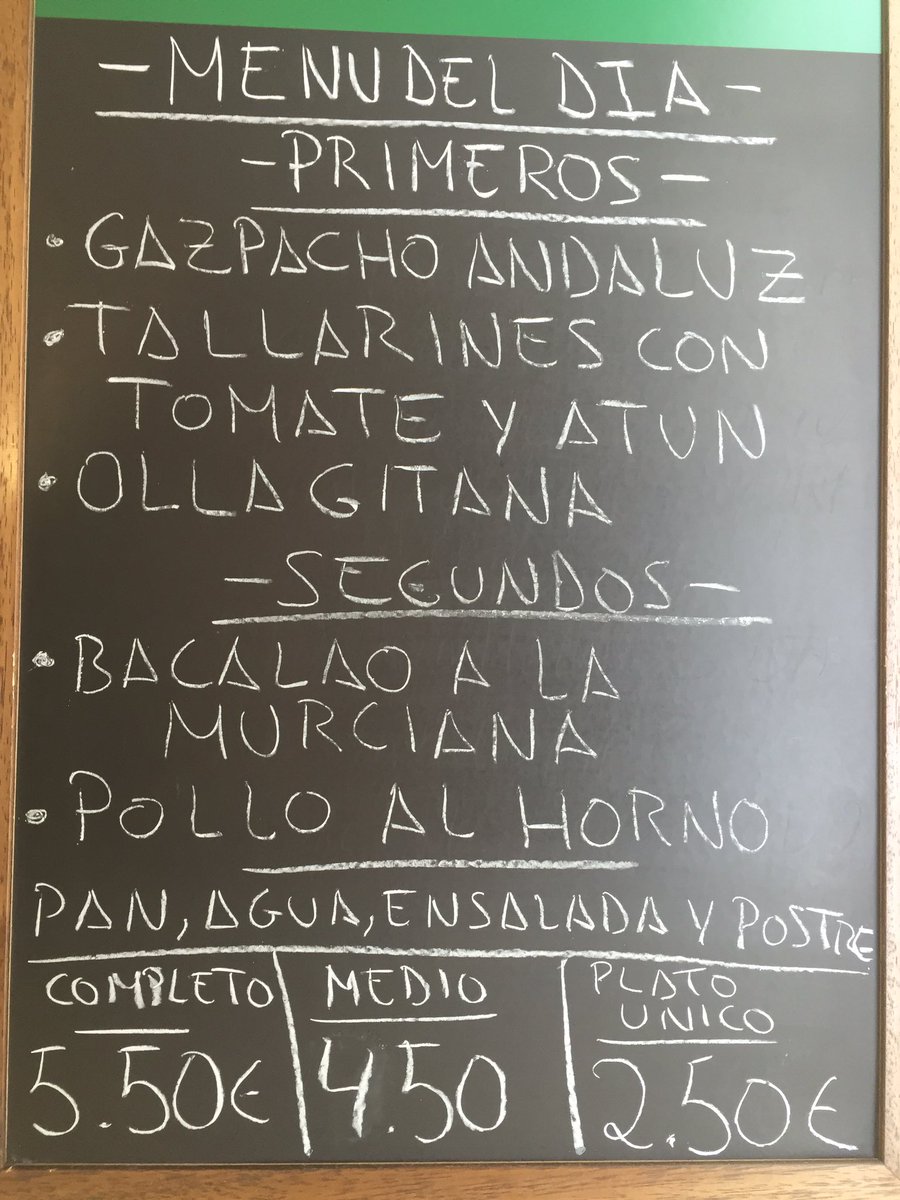 - MENU DEL DIA -
- PRIMEROS -
• GAZPACHO ANDALUZ
• TALLARINES CON
TOMATE Y ATUN
• OLLA GITANA
- SEGUNDOS -
• BACALAO A LA
MURCIANA
• POLLO AL HORNO
PAN, AGUA, ENSALADA Y POSTRE
COMPLETO
5.50€
MEDIO
4.50
PLATO
UNICO
2.50€